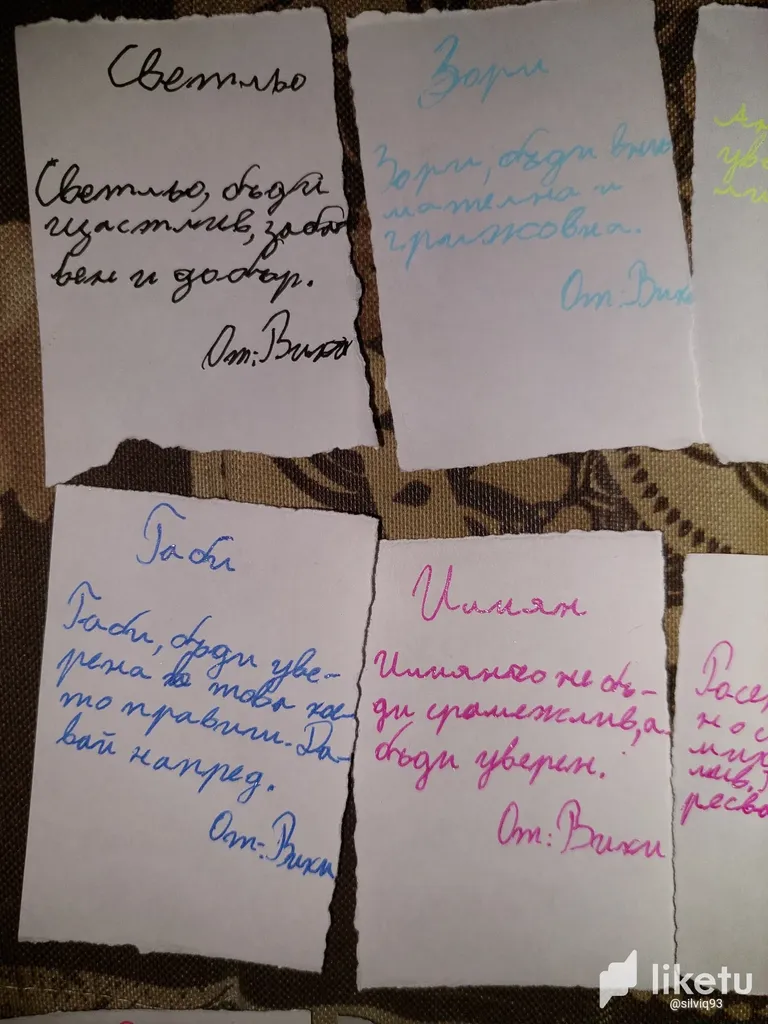 Светльо
Светльо, бъди
щастлив, забав
вен и добър.
От: Вики
Зори
Зори, бъди вни
мателна и
грижовна.
От: Вики
Габи
Габи, бъди уве-
рена в това кое-
то правиш. Да-
вай напред.
От: Вики
Илиян
Илиянчо не бъ-
ди срамежлив, а
бъди уверен.
От: Вики
но с
ресва
liketu
@silviq93